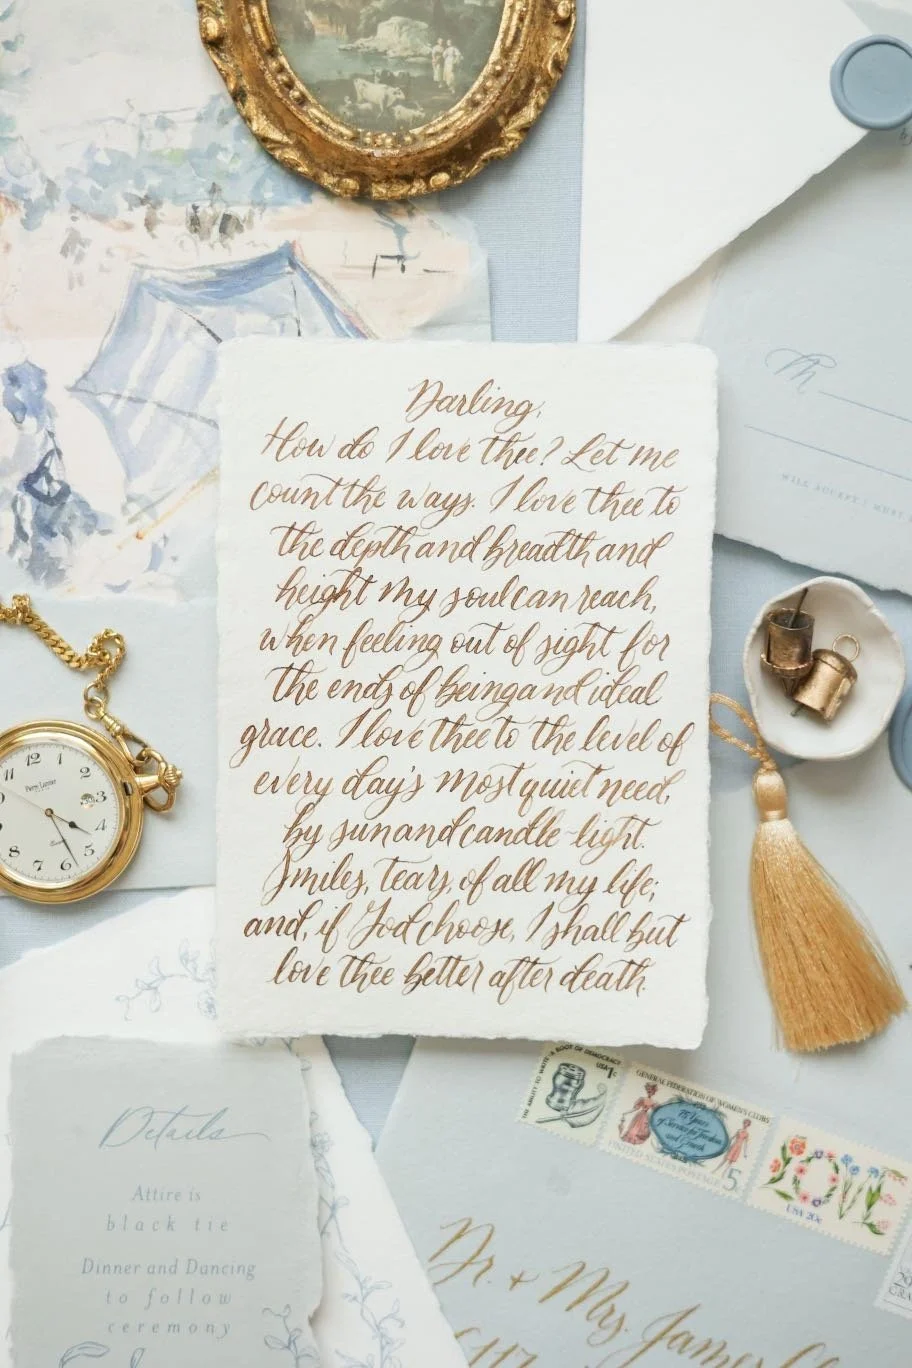 Darling,
How do I love thee? Let me
count the ways. I love thee to
the depth and breadth and
height my soul can reach,
when feeling out of sight for
the ends of being and ideal
grace. I love thee to the level of
every day's most quiet need,
by sun and candle-light.
Smiles, tears, of all my life;
and, if God choose, I shall but
love thee better after death.
M
WILL ACCEPT
12
11
10
9
8
7
6
5
4
THE ABILITY TO WRITE · A ROOT OF DEMOCRACY
USA 1c
GENERAL FEDERATION OF WOMEN'S CLUBS
75 Years
of Service for Freedom
and Growth
UNITED STATES POSTAGE
5
LOVE
USA 20c
Details
Attire is
black tie
Dinner and Dancing
to follow
ceremony
Dr. + Mrs. James